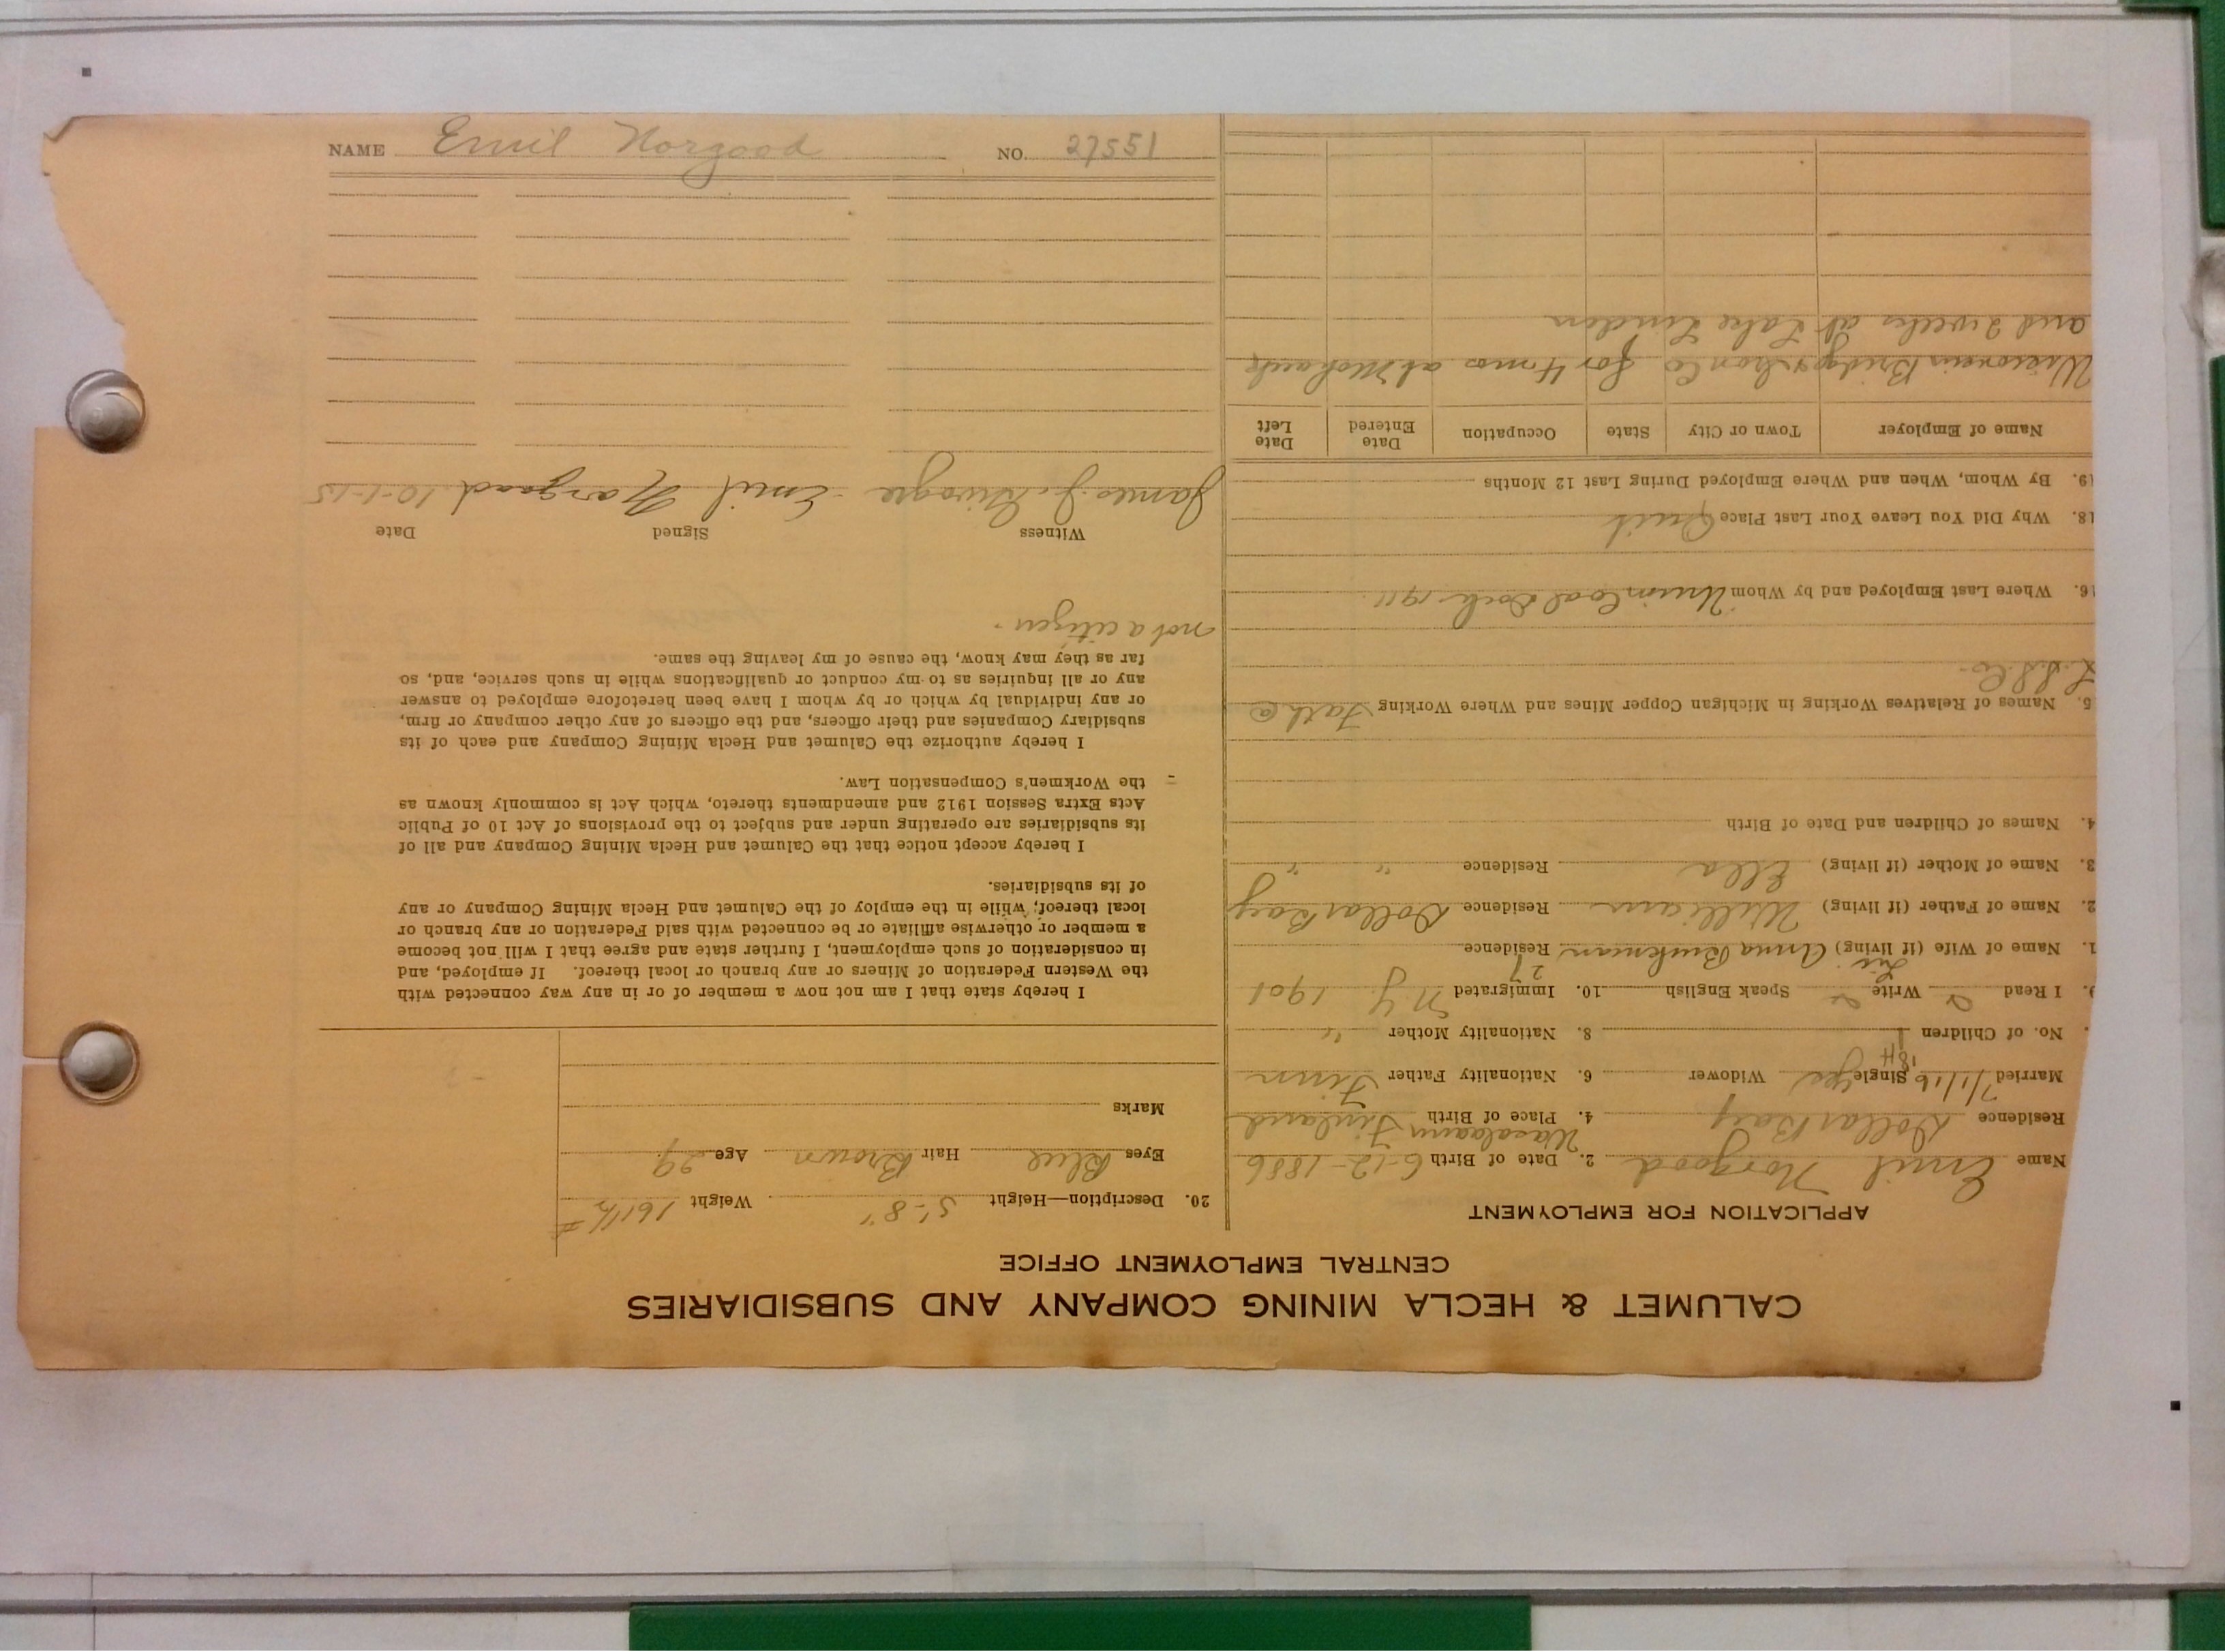 CALUMET & HECLA MINING COMPANY AND SUBSIDIARIES
CENTRAL EMPLOYMENT OFFICE
APPLICATION FOR EMPLOYMENT
Name Emil Norgood 2. Date of Birth 6-12-1886
Residence Dollar Bay 4. Place of Birth Finland
Married 7/1/16 Single yes Widower 6. Nationality Father Finn
No. of Children 1 8. Nationality Mother "
9. I Read Write Speak English 10. Immigrated N.Y. 1901
1. Name of Wife (if living) Anna Residence
2. Name of Father (if living) William Residence Dollar Bay
3. Name of Mother (if living) Ella Residence " "
4. Names of Children and Date of Birth
5. Names of Relatives Working in Michigan Copper Mines and Where Working Father
16. Where Last Employed and by Whom Union Coal Dock 1911
18. Why Did You Leave Your Last Place Quit
19. By Whom, When and Where Employed During Last 12 Months
Name of Employer Town or City State Occupation Date Entered Date Left
Wisconsin Bridge & Iron Co for 4 mos at Mohawk
and 2 weeks at Lake Linden
20. Description—Height 5'-8" Weight 161½ #
Eyes Blue Hair Brown Age 29
Marks
I hereby state that I am not now a member of or in any way connected with
the Western Federation of Miners or any branch or local thereof. If employed, and
in consideration of such employment, I further state and agree that I will not become
a member or otherwise affiliate or be connected with said Federation or any branch or
local thereof, while in the employ of the Calumet and Hecla Mining Company or any
of its subsidiaries.
I hereby accept notice that the Calumet and Hecla Mining Company and all of
its subsidiaries are operating under and subject to the provisions of Act 10 of Public
Acts Extra Session 1912 and amendments thereto, which Act is commonly known as
the Workmen's Compensation Law.
I hereby authorize the Calumet and Hecla Mining Company and each of its
subsidiary Companies and their officers, and the officers of any other company or firm,
or any individual by which or by whom I have been heretofore employed to answer
any or all inquiries as to my conduct or qualifications while in such service, and, so
far as they may know, the cause of my leaving the same.
not a citizen.
Witness Signed Date
James J. Emil Norgaard 10-1-15
NAME Emil Norgood NO. 27551